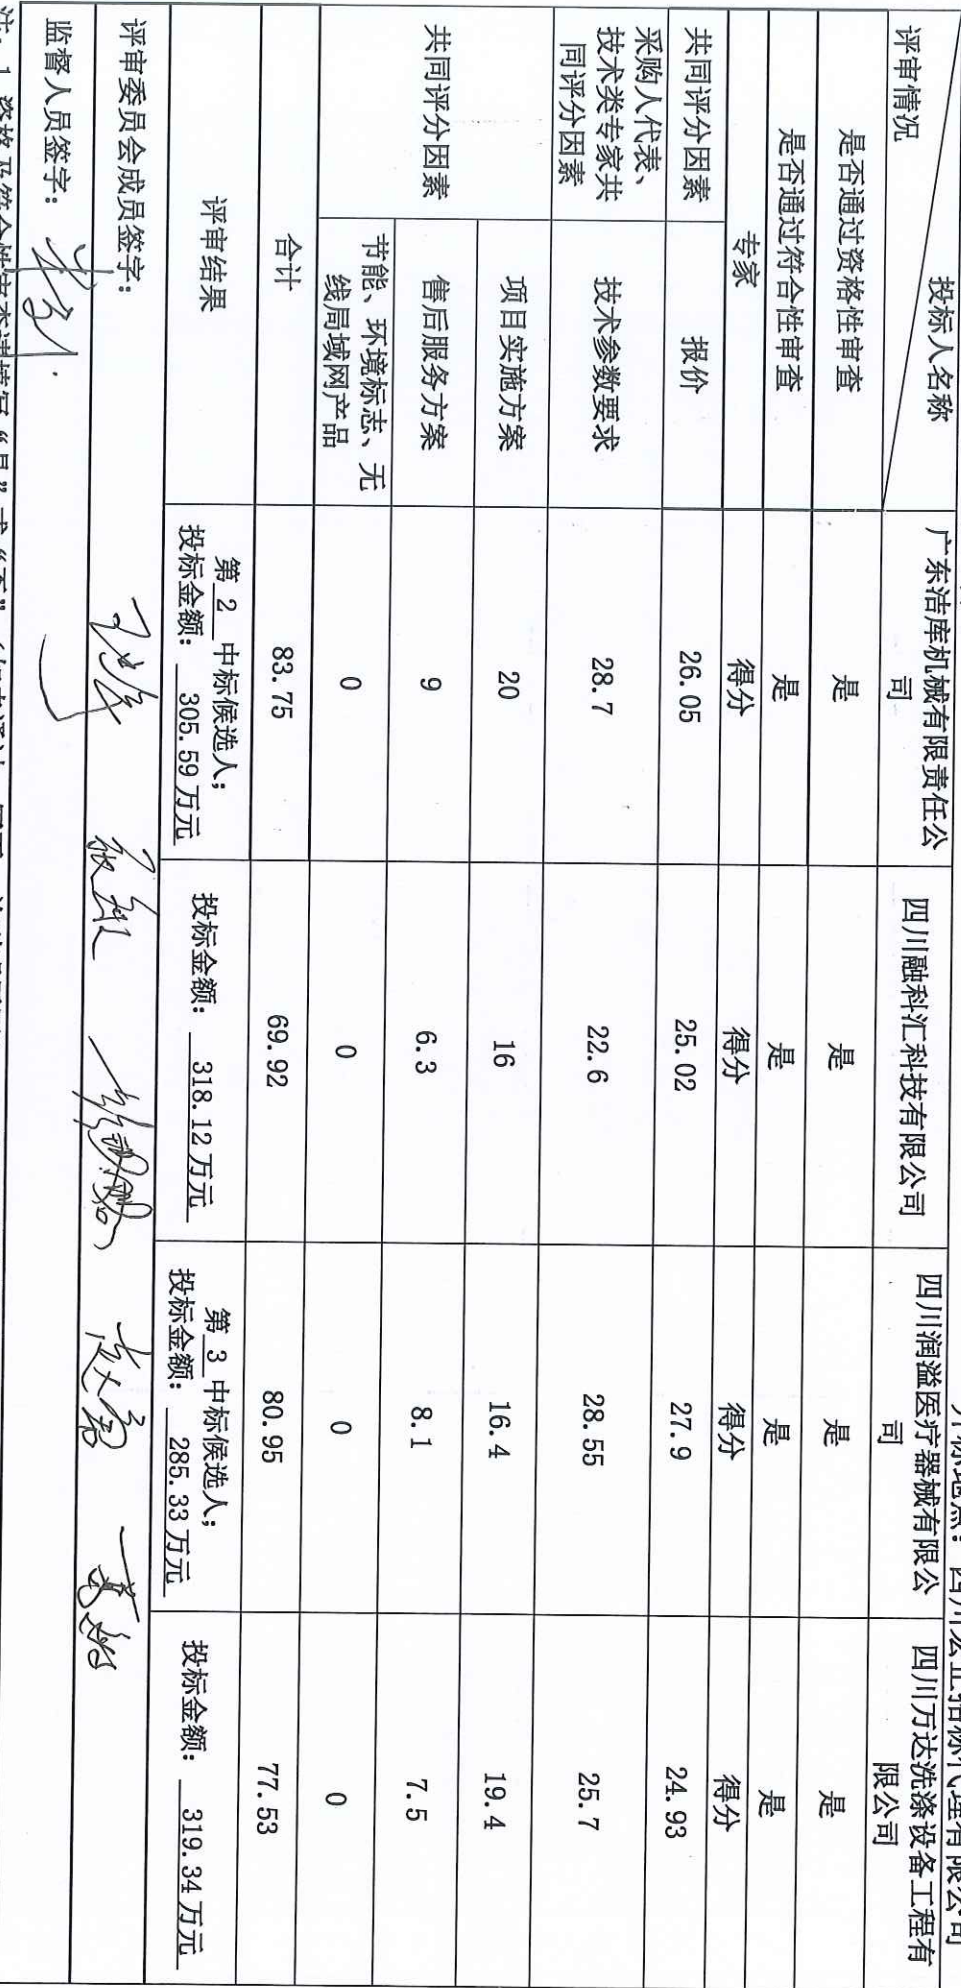 开标地点：四川宏正招标代理有限公司
投标人名称
评审情况
广东洁库机械有限责任公
司
四川融科汇科技有限公司
四川润溢医疗器械有限公
司
四川万达洗涤设备工程有
限公司
是否通过资格性审查 是 是 是 是
是否通过符合性审查 是 是 是 是
专家 得分 得分 得分 得分
共同评分因素 报价 26.05 25.02 27.9 24.93
采购人代表、
技术类专家共
同评分因素
技术参数要求 28.7 22.6 28.55 25.7
共同评分因素
项目实施方案 20 16 16.4 19.4
售后服务方案 9 6.3 8.1 7.5
节能、环境标志、无
线局域网产品
0 0 0 0
合计 83.75 69.92 80.95 77.53
评审结果
第 2 中标候选人；
投标金额： 305.59 万元
投标金额： 318.12 万元
第 3 中标候选人；
投标金额： 285.33 万元
投标金额： 319.34 万元
评审委员会成员签字：
监督人员签字：